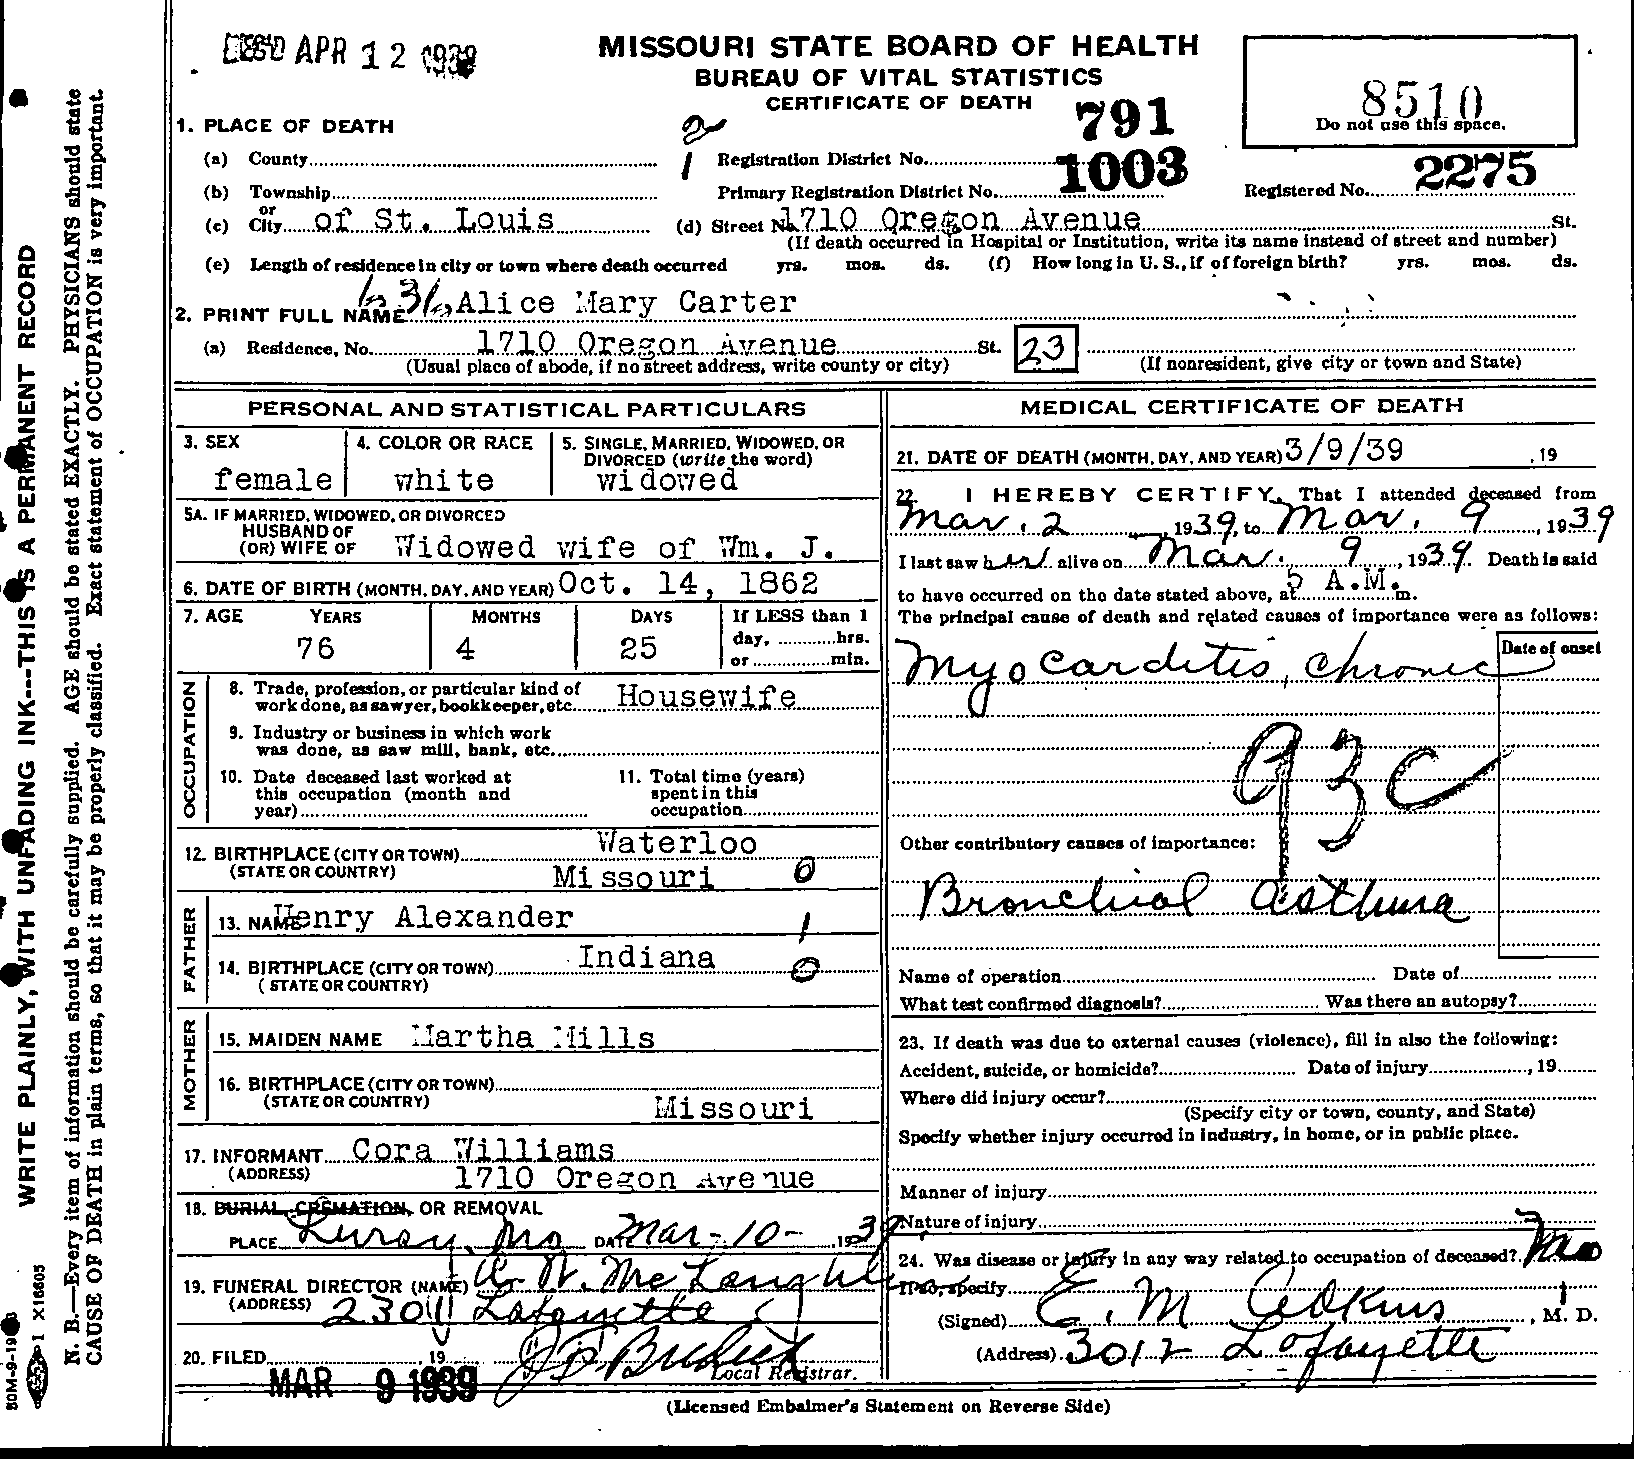 REC'D APR 12 1939
MISSOURI STATE BOARD OF HEALTH
BUREAU OF VITAL STATISTICS
CERTIFICATE OF DEATH
8510
Do not use this space.
1. PLACE OF DEATH
2
1
791
(a) County
Registration District No.
(b) Township
Primary Registration District No. 1003
Registered No. 2275
(c) or City of St. Louis
(d) Street No. 1710 Oregon Avenue St.
(If death occurred in Hospital or Institution, write its name instead of street and number)
(e) Length of residence in city or town where death occurred yrs. mos. ds. (f) How long in U. S., if of foreign birth? yrs. mos. ds.
2. PRINT FULL NAME 36 Alice Mary Carter
(a) Residence, No. 1710 Oregon Avenue St. 23
(Usual place of abode, if no street address, write county or city) (If nonresident, give city or town and State)
PERSONAL AND STATISTICAL PARTICULARS
3. SEX
female
4. COLOR OR RACE
white
5. SINGLE, MARRIED, WIDOWED, OR
DIVORCED (write the word)
widowed
5A. IF MARRIED, WIDOWED, OR DIVORCED
HUSBAND OF
(OR) WIFE OF Widowed wife of Wm. J.
6. DATE OF BIRTH (MONTH, DAY, AND YEAR) Oct. 14, 1862
7. AGE YEARS MONTHS DAYS If LESS than 1
day, hrs.
or min.
76 4 25
OCCUPATION
8. Trade, profession, or particular kind of
work done, as sawyer, bookkeeper, etc. Housewife
9. Industry or business in which work
was done, as saw mill, bank, etc.
10. Date deceased last worked at
this occupation (month and
year)
11. Total time (years)
spent in this
occupation
12. BIRTHPLACE (CITY OR TOWN) Waterloo
(STATE OR COUNTRY) Missouri 0
FATHER
13. NAME Henry Alexander 1
14. BIRTHPLACE (CITY OR TOWN) Indiana 0
(STATE OR COUNTRY)
MOTHER
15. MAIDEN NAME Martha Mills
16. BIRTHPLACE (CITY OR TOWN)
(STATE OR COUNTRY) Missouri
17. INFORMANT Cora Williams
(ADDRESS) 1710 Oregon Avenue
18. BURIAL, CREMATION, OR REMOVAL
PLACE Luray, Mo DATE Mar-10-, 1939
19. FUNERAL DIRECTOR (NAME) A. W. McLaughlin
(ADDRESS) 2301 Lafayette
20. FILED 19
MAR 9 1939
Local Registrar.
MEDICAL CERTIFICATE OF DEATH
21. DATE OF DEATH (MONTH, DAY, AND YEAR) 3/9/39 , 19
22. I HEREBY CERTIFY, That I attended deceased from
Mar. 2, 1939, to Mar. 9, 1939
I last saw her alive on Mar. 9, 1939. Death is said
to have occurred on the date stated above, at 5 A.M. m.
The principal cause of death and related causes of importance were as follows:
Date of onset
Myocarditis, chronic
93c
Other contributory causes of importance:
Bronchial asthma
Name of operation Date of
What test confirmed diagnosis? Was there an autopsy?
23. If death was due to external causes (violence), fill in also the following:
Accident, suicide, or homicide? Date of injury , 19
Where did injury occur?
(Specify city or town, county, and State)
Specify whether injury occurred in industry, in home, or in public place.
Manner of injury
Nature of injury
24. Was disease or injury in any way related to occupation of deceased? No
If so, specify
(Signed) E. M. Adkins, M. D.
(Address) 3012 Lafayette
(Licensed Embalmer's Statement on Reverse Side)
WRITE PLAINLY, WITH UNFADING INK---THIS IS A PERMANENT RECORD
N. B.—Every item of information should be carefully supplied. AGE should be stated EXACTLY. PHYSICIANS should state
CAUSE OF DEATH in plain terms, so that it may be properly classified. Exact statement of OCCUPATION is very important.
X16605